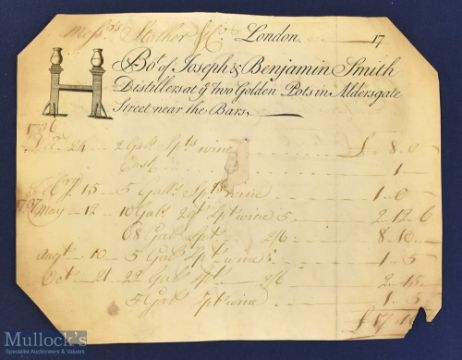 Mess.rs Stather & Co. London 17
Bo.t of Joseph & Benjamin Smith
Distillers at y.e two Golden Pots in Aldersgate
Street near the Bars
1736
Dec.r 24 2 Gall.s Sp.ts wine £ 8 0
Cask 1
15 5 Gall.s Sp.ts wine 1 0
1737 May 12 10 Gal.s 2 q.ts Sp.t wine 5 2 12 6
68 Gal.s Sp.t 2/6 8 10
Aug.t 10 5 Gal.s Sp.t wine 1 5
Oct.r 21 22 Gal.s Sp.t 2/6 2 15
5 Gal.s Sp.t wine 1 5
£ 17
Mullock's
Specialist Auctioneers & Valuers